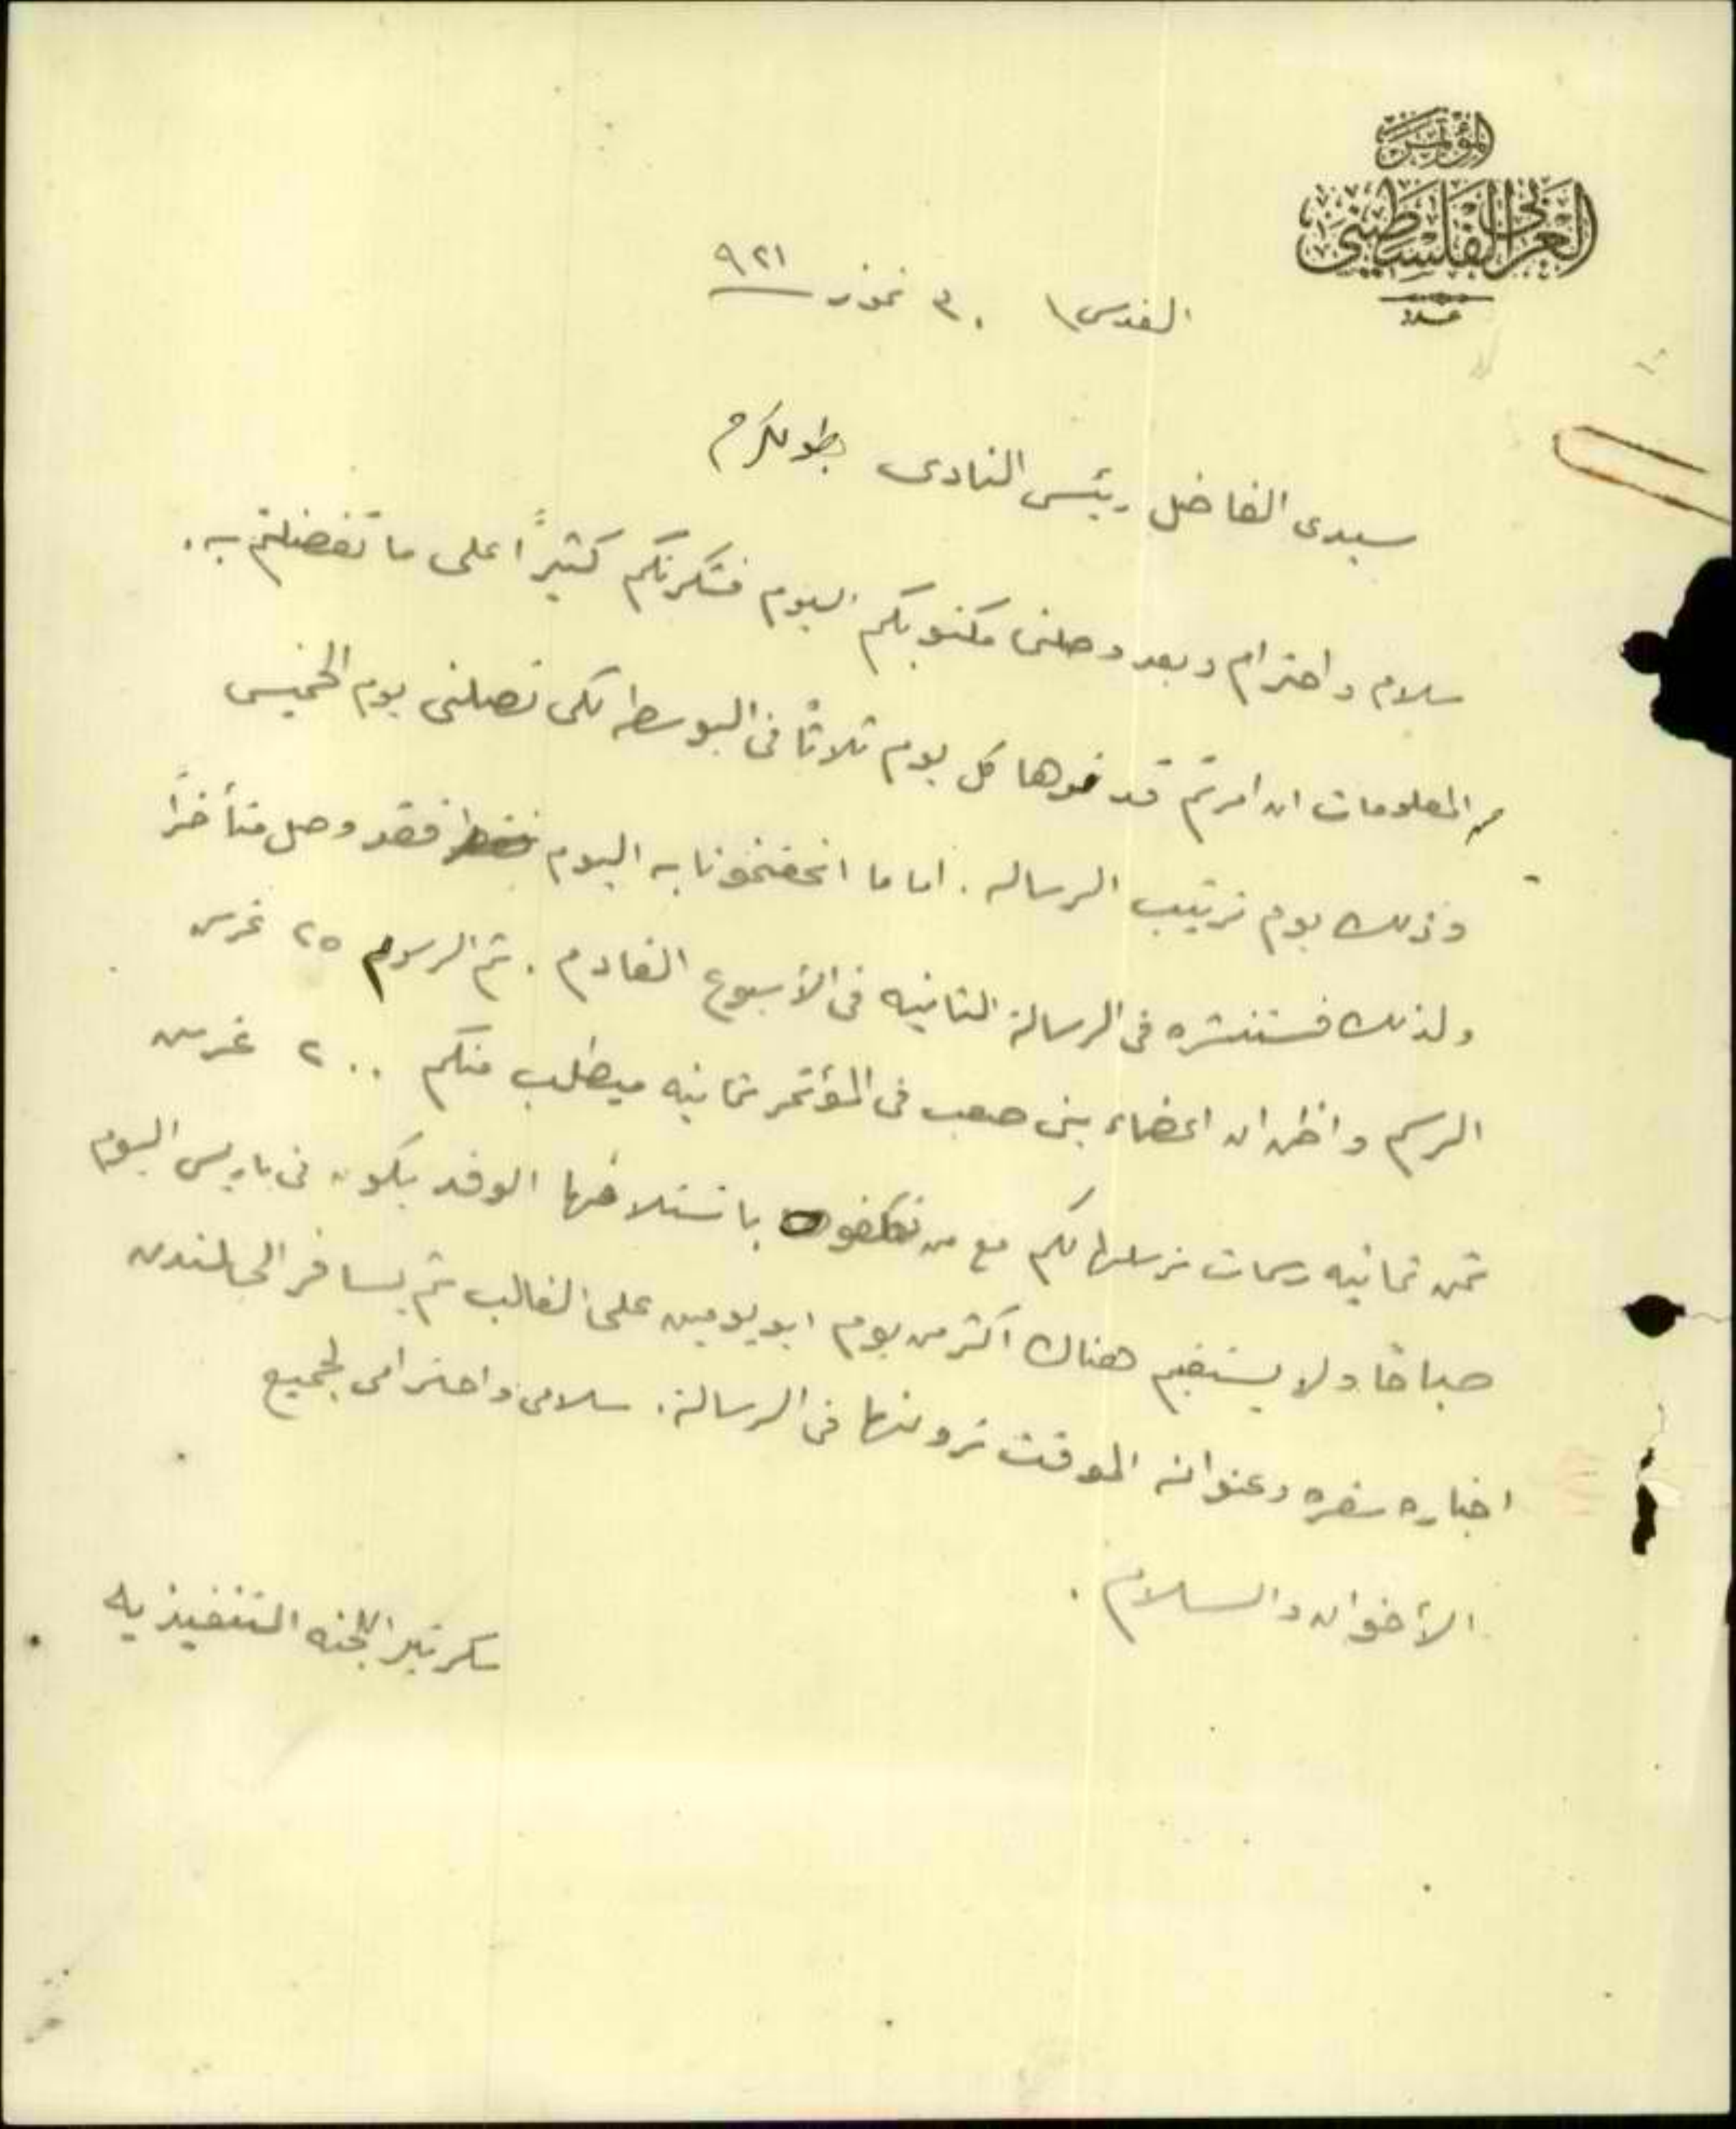 المؤتمر
العربي الفلسطيني
عدد
القدس \ ٣٠ تموز ٩٢١
سيدى الفاضل رئيس النادى بطولكرم
سلام واحترام وبعد وصلنى مكتوبكم اليوم فشكرتكم كثيراً على ما تفضلتم به .
المعلومات ان امرتم كل يوم ثلاثا فى البوسطه لكى تصلنى يوم الخميس
وذلك يوم ترتيب الرساله . اما ما اتحفتمونا به اليوم فقد وصل متأخراً
ولذلك فسننشره فى الرسالة الثانيه فى الأسبوع القادم . ثم الرسوم ٢٥ غرس
الرسم واظن ان اعضاء بنى صعب فى المؤتمر ثمانيه فيطلب منكم ٢٠٠ غرس
ثمن ثمانيه رسمات نرسلها لكم مع من تكلفون باستلامها الوفد يكون فى باريس اليوم
صباحا ولا يستقيم هناك اكثر من يوم او يومين على الغالب ثم يسافر الى لندن
اخباره سفره وعنوانه الموقت ترونها فى الرسالة . سلامى واحترامى لجميع
الأخوان والسلام .
سكرتير اللجنه التنفيذيه